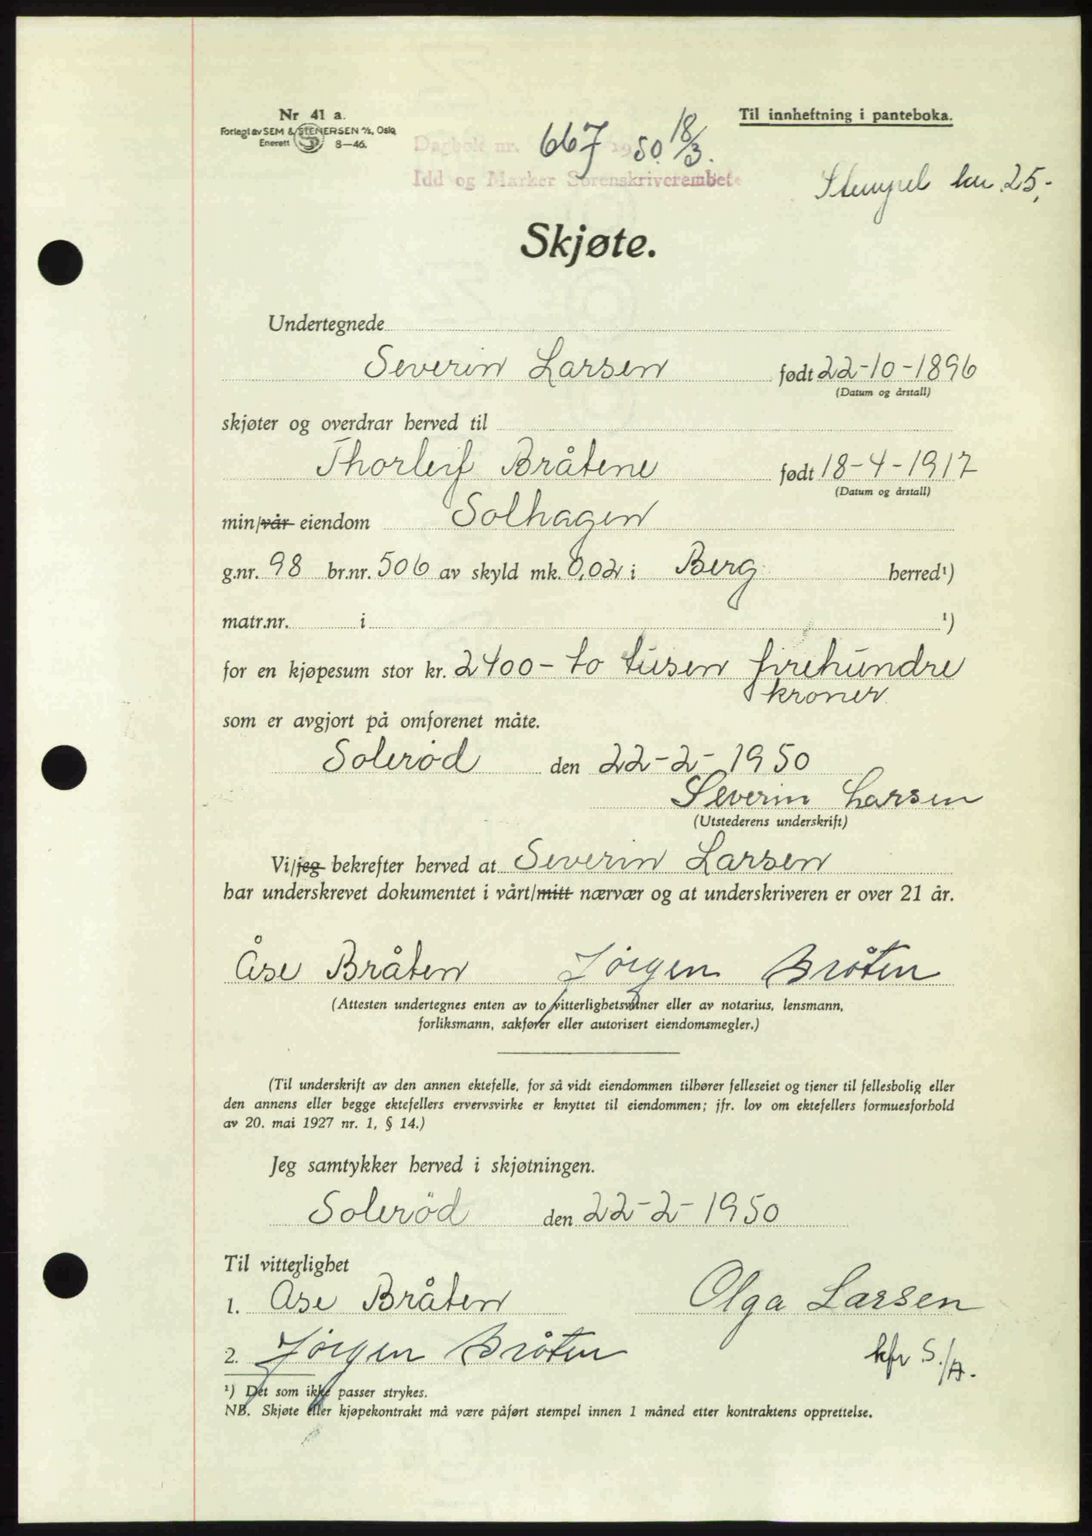 Nr 41 a.
Forlagt av SEM & STENERSEN A/S, Oslo
Enerett 8—46.
Til innheftning i panteboka.
Dagbok nr. 667 1950 18/3.
Idd og Marker Sorenskriverembete
Stempel kr. 25,-
Skjøte.
Undertegnede
Severin Larsen født 22-10-1896
(Datum og årstall)
skjøter og overdrar herved til
Thorleif Bråtene født 18-4-1917
(Datum og årstall)
min/vår eiendom Solhagen
g.nr. 98 br.nr. 506 av skyld mk. 0,02 i Berg herred¹)
matr.nr. i ¹)
for en kjøpesum stor kr. 2400- to tusen firehundre
kroner
som er avgjort på omforenet måte.
Solerød den 22-2-1950
Severin Larsen
(Utstederens underskrift)
Vi/jeg bekrefter herved at Severin Larsen
har underskrevet dokumentet i vårt/mitt nærvær og at underskriveren er over 21 år.
Åse Bråten Jörgen Bråten
(Attesten undertegnes enten av to vitterlighetsvitner eller av notarius, lensmann,
forliksmann, sakfører eller autorisert eiendomsmegler.)
(Til underskrift av den annen ektefelle, for så vidt eiendommen tilhører felleseiet og tjener til fellesbolig eller
den annens eller begge ektefellers ervervsvirke er knyttet til eiendommen; jfr. lov om ektefellers formuesforhold
av 20. mai 1927 nr. 1, § 14.)
Jeg samtykker herved i skjøtningen.
Solerød den 22-2-1950
Til vitterlighet
1. Åse Bråten Olga Larsen
2. Jörgen Bråten kfr S./A.
¹) Det som ikke passer strykes.
NB. Skjøte eller kjøpekontrakt må være påført stempel innen 1 måned etter kontraktens opprettelse.